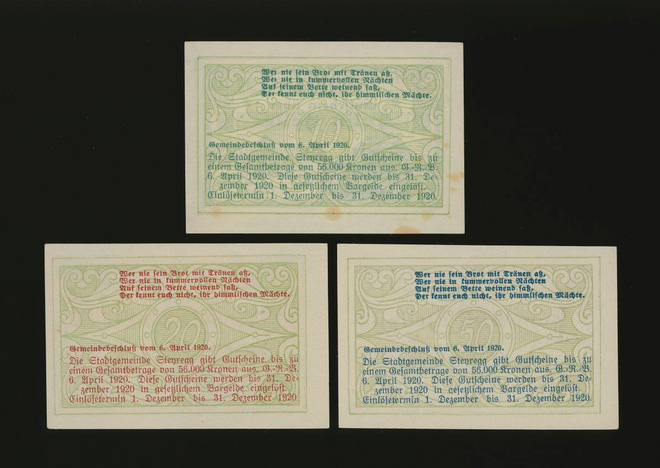 Wer nie sein Brot mit Tränen aß,
Wer nie in kummervollen Nächten
Auf seinem Bette weinend saß,
Der kennt euch nicht, ihr himmlischen Mächte.
Gemeindebeschluß vom 6. April 1920.
Die Stadtgemeinde Steyregg gibt Gutscheine bis zu
einem Gesamtbetrage von 56.000 Kronen aus. G.-R.-B.
6. April 1920. Diese Gutscheine werden bis 31. De-
zember 1920 in gesetzlichem Bargelde eingelöst.
Einlösetermin 1. Dezember bis 31. Dezember 1920.
Wer nie sein Brot mit Tränen aß,
Wer nie in kummervollen Nächten
Auf seinem Bette weinend saß,
Der kennt euch nicht, ihr himmlischen Mächte.
Gemeindebeschluß vom 6. April 1920.
Die Stadtgemeinde Steyregg gibt Gutscheine bis zu
einem Gesamtbetrage von 56.000 Kronen aus. G.-R.-B.
6. April 1920. Diese Gutscheine werden bis 31. De-
zember 1920 in gesetzlichem Bargelde eingelöst.
Einlösetermin 1. Dezember bis 31. Dezember 1920
Wer nie sein Brot mit Tränen aß,
Wer nie in kummervollen Nächten
Auf seinem Bette weinend saß,
Der kennt euch nicht, ihr himmlischen Mächte.
Gemeindebeschluß vom 6. April 1920.
Die Stadtgemeinde Steyregg gibt Gutscheine bis zu
einem Gesamtbetrage von 56.000 Kronen aus. G.-R.-B.
6. April 1920. Diese Gutscheine werden bis 31. De-
zember 1920 in gesetzlichem Bargelde eingelöst.
Einlösetermin 1. Dezember bis 31. Dezember 1920